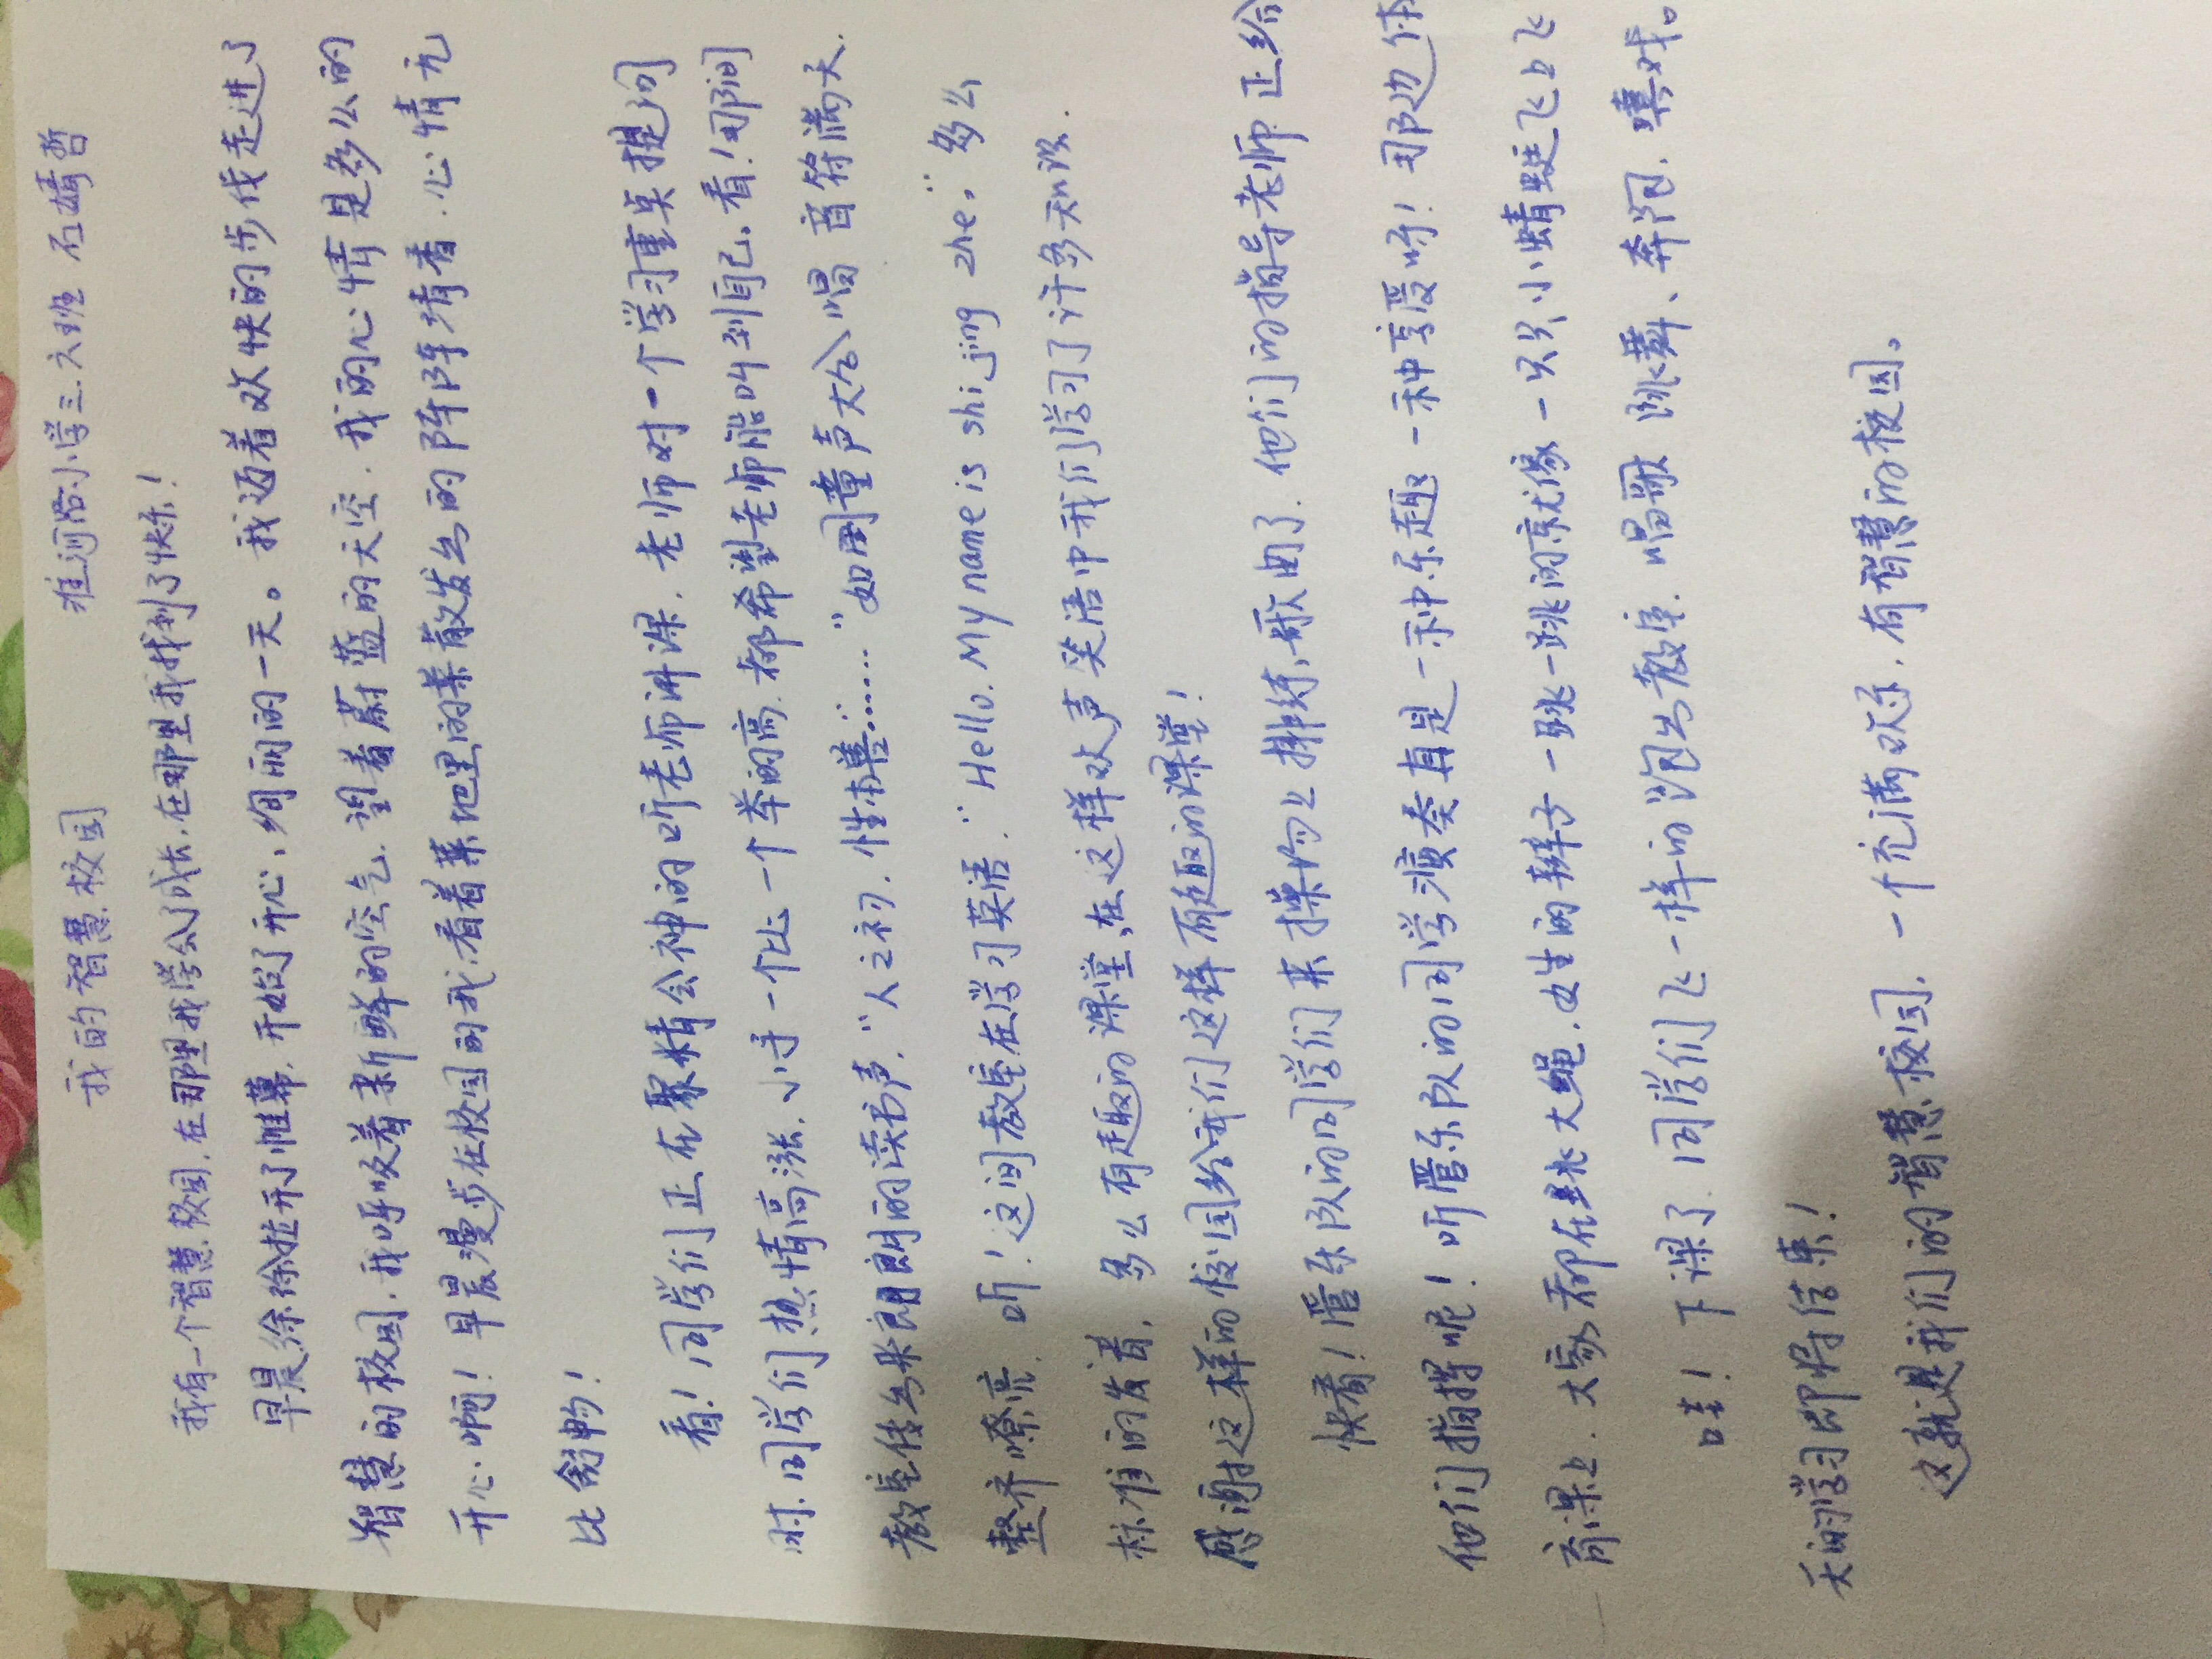 我的智慧校园 淮河路小学三.六班 石婧哲
我有一个智慧校园,在那里我学会了成长,在那里我找到了快乐!
早晨徐徐拉开了帷幕,开始了开心、绚丽的一天。我迈着欢快的步伐走进了
智慧的校园,我呼吸着新鲜的空气,望着蔚蓝的天空,我的心情是多么的
开心啊!早晨漫步在校园的我,看着菜地里的菜散发出的阵阵清香,心情无
比舒畅!
看!同学们正在聚精会神的听老师讲课,老师对一个学习重点提问
时,同学们热情高涨,小手一个比一个举的高,都希望老师能叫到自己、看!那间
教室传出来朗朗的读书声,“人之初,性本善……”如同童声大合唱 音符满天.
整齐嘹亮.听!这间教室在学习英语.“Hello. My name is shi jing zhe.”多么
标准的发音,多么有趣的课堂,在这样欢声笑语中我们学习了许多知识.
感谢这样的校园给我们这样有趣的课堂!
快看!管乐队的同学们来操场上排练歌曲了.他们的指导老师正给
他们指挥呢!听管乐队的同学演奏真是一种乐趣一种享受呀!那边体
育课上,大家都在跳大绳,女生的辫子一跳一跳的就像一只只小蜻蜓飞上飞
哇!下课了.同学们飞一样的跑出教室.唱歌 跳舞、奔跑、嘻戏。
天的学习即将结束!
这就是我们的智慧校园,一个充满欢乐,有智慧的校园。